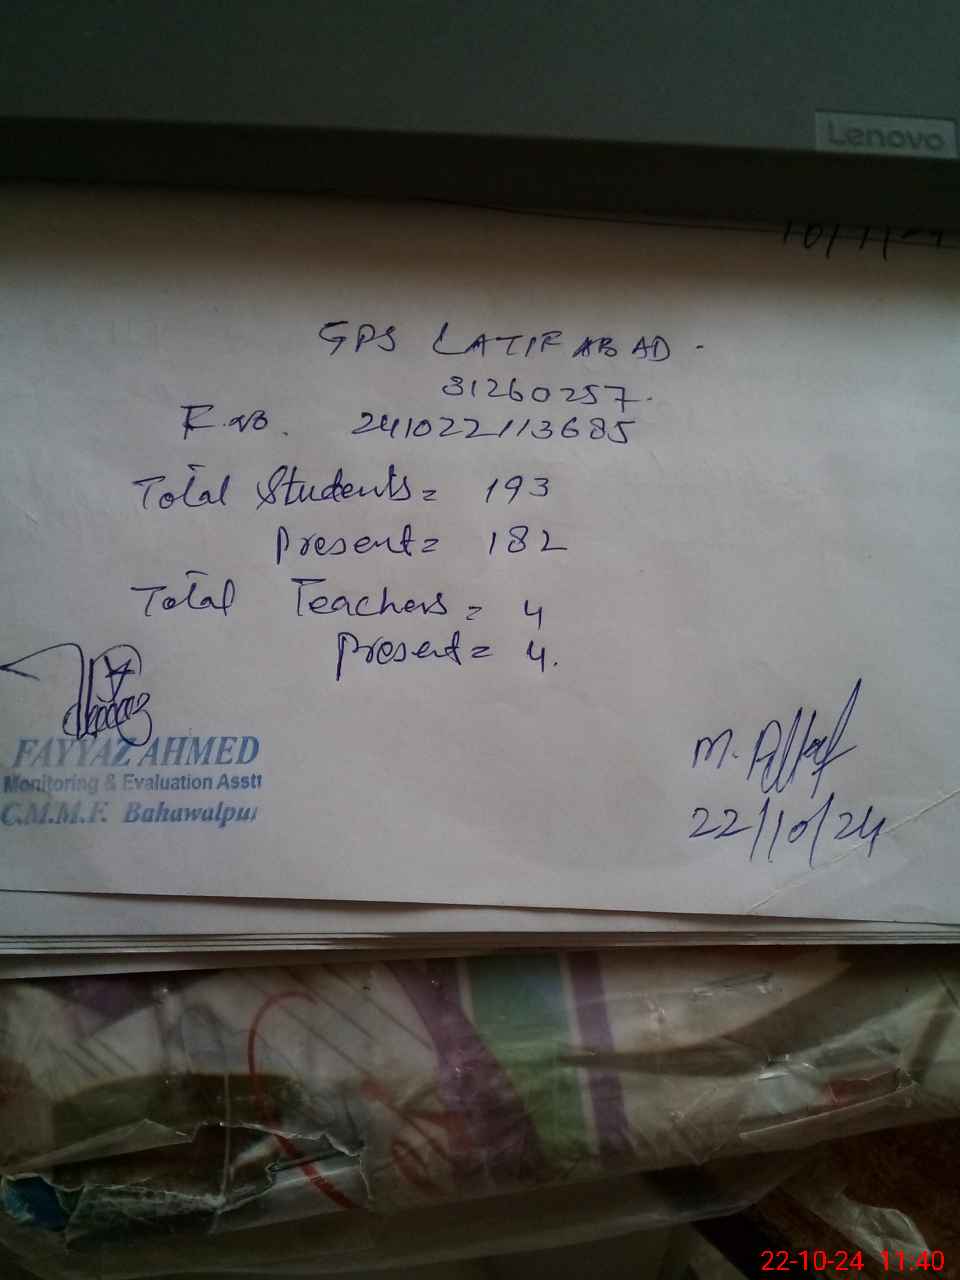 Lenovo
GPS LATIFABAD.
31260257.
F.no. 241022113685
Total Students = 193
Present = 182
Total Teachers = 4
Present = 4.
FAYYAZ AHMED
Monitoring & Evaluation Asstt
C.M.M.F. Bahawalpur
M. Altaf
22/10/24
22-10-24 11:40